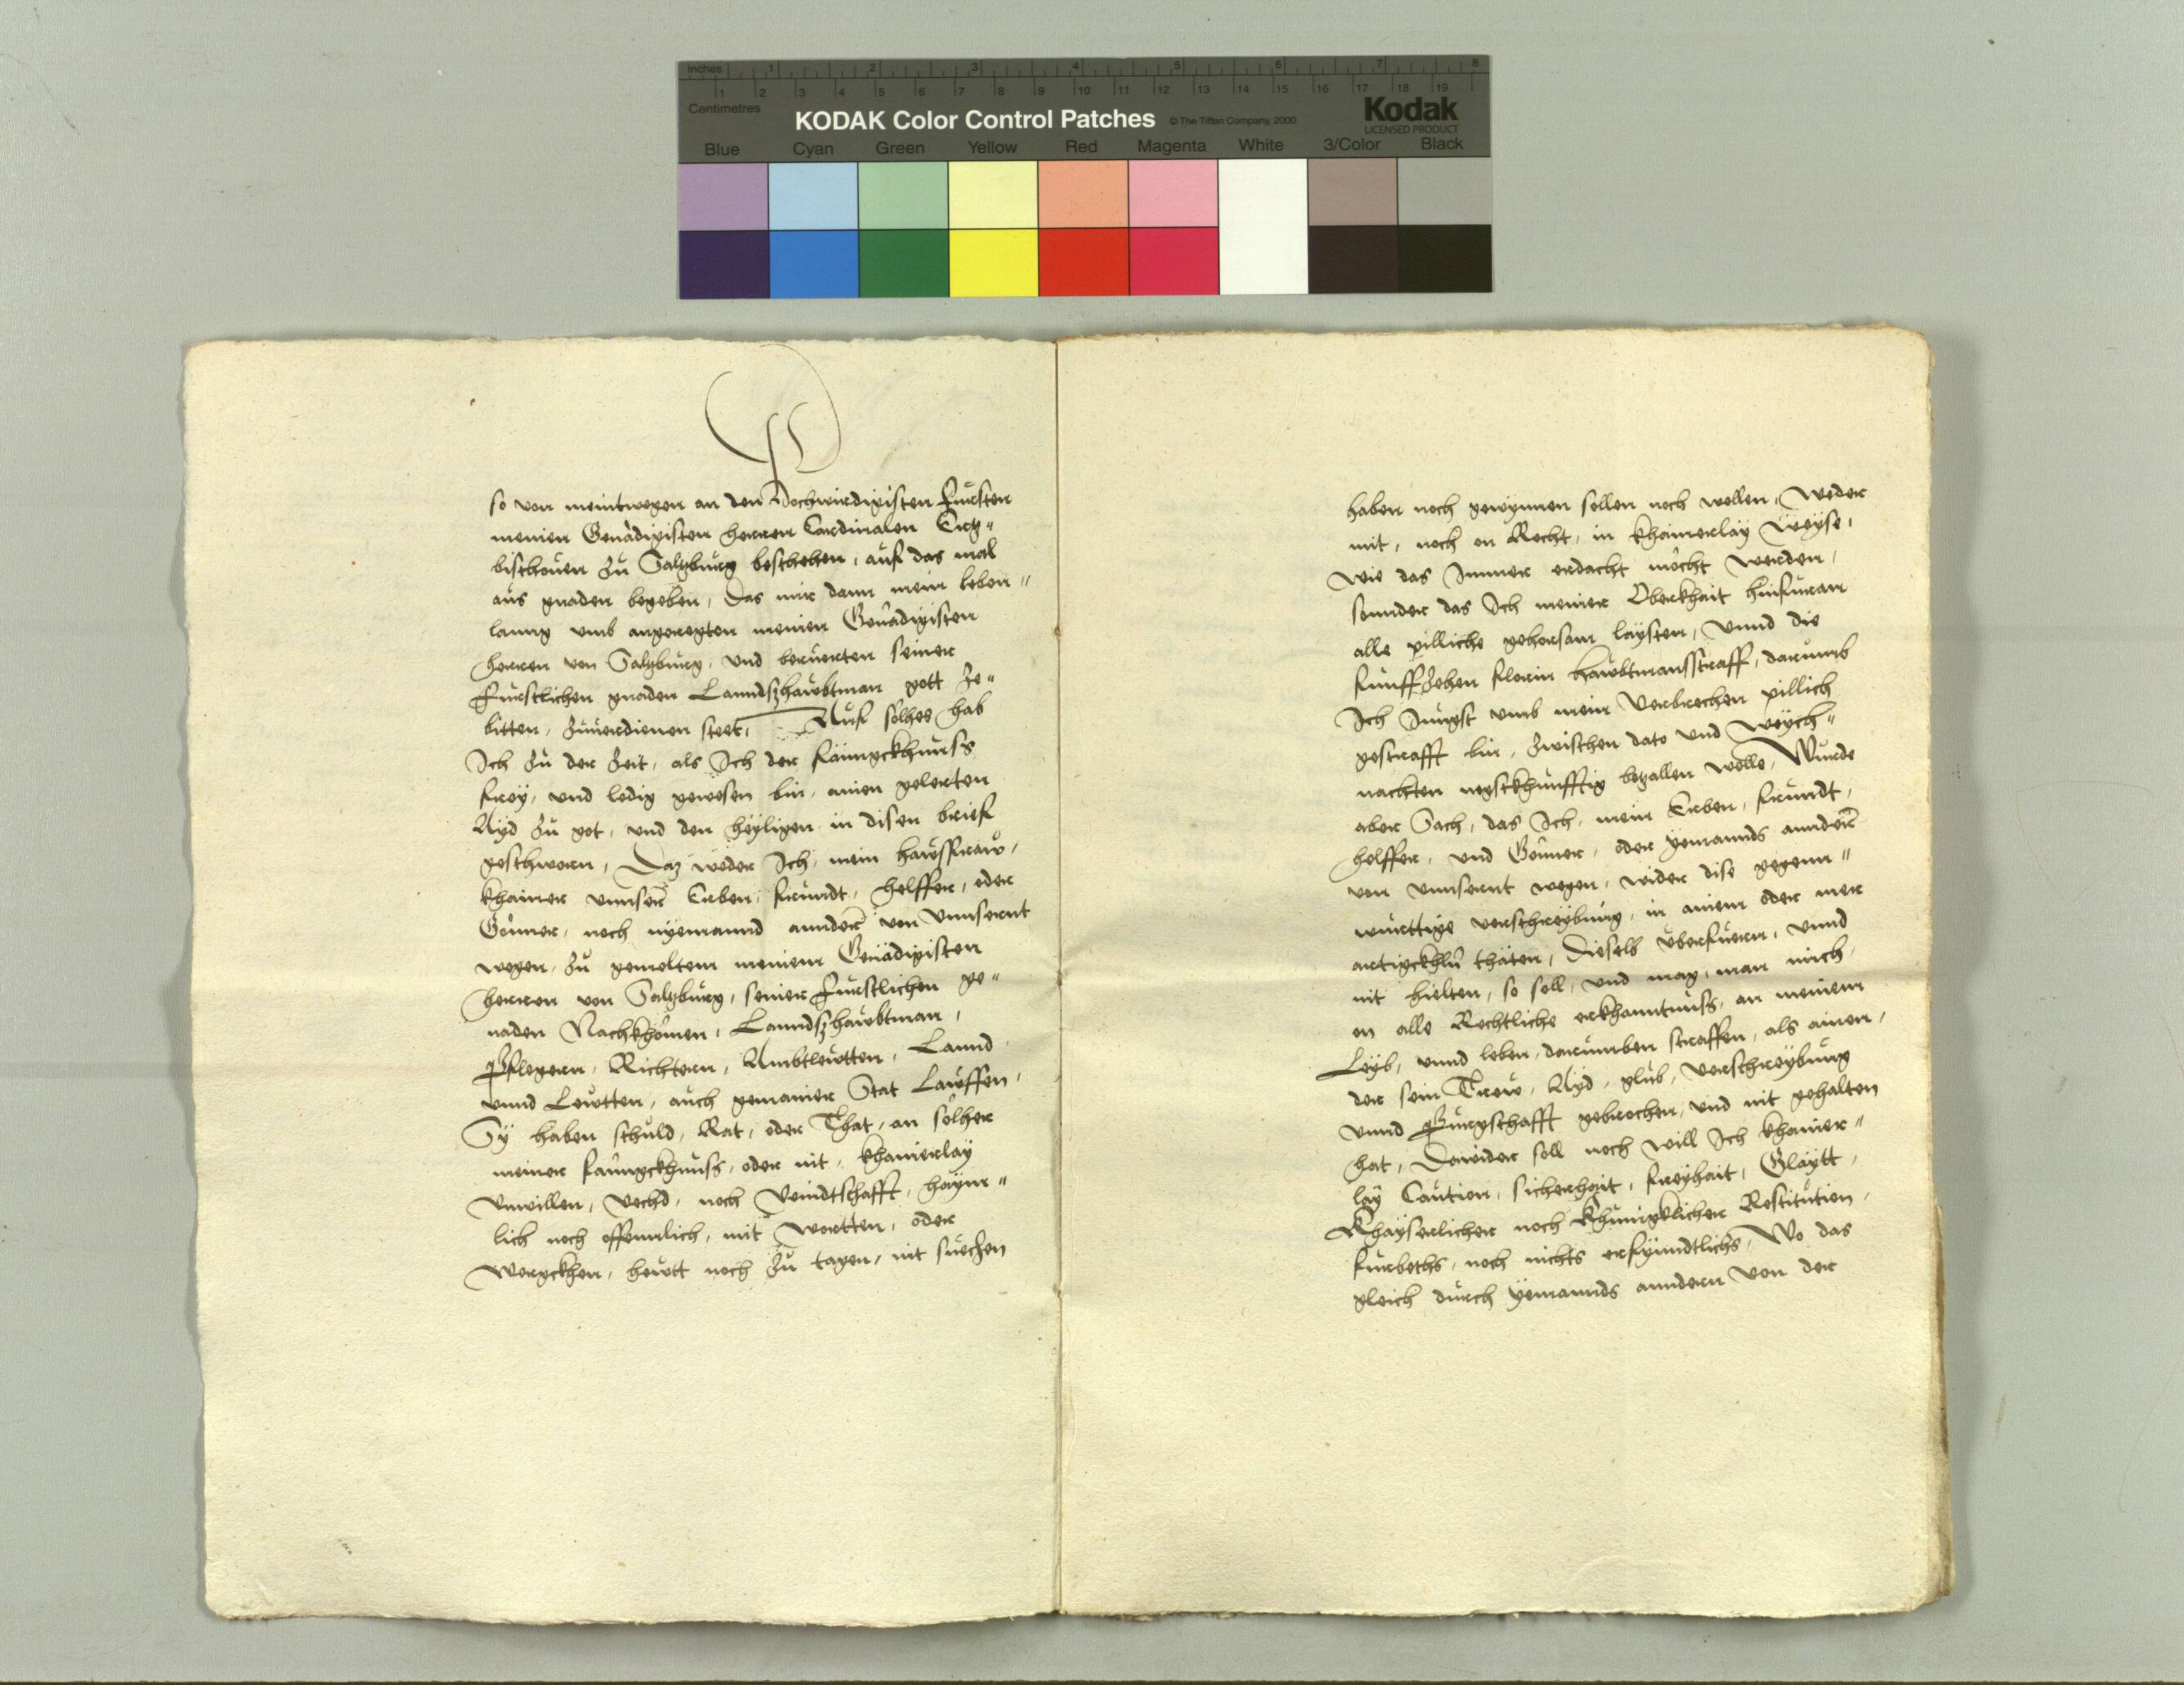 Inches 1 2 3 4 5 6 7 8
Centimetres 1 2 3 4 5 6 7 8 9 10 11 12 13 14 15 16 17 18 19
KODAK Color Control Patches © The Tiffen Company, 2000 Kodak
LICENSED PRODUCT
Blue Cyan Green Yellow Red Magenta White 3/Color Black
so von meintwegen an den Hochwirdigisten Fürsten
meinen Genädigisten herren Cardinalen Ertz„
bischouen zu Saltzburg beschehen, auf das mal
aus gnaden begeben, Das mir dann mein leben„
lanng umb angeregten meinen Genädigisten
herren von Saltzburg, und berüerten seiner
Fürstlichen gnaden Lanndszhawbtman gott ze„
bitten, zuuerdienen steet, Auf sölhes hab
Ich zu der Zeit, als Ich der fännckhnuss
frey, und ledig gewesen bin, ainen gelerten
Ayd zu got, und den heyligen in disen brief
geschworn, Daz weder Ich, mein hawssfraw,
khainer unnser Erben, freundt, helffer, oder
Gönner, noch nyemannd annder von Unnsernt
wegen, zu gemeltem meinem Genädigisten
herren von Saltzburg, seiner Fürstlichen ge„
naden Nachkhömen, Lanndszhawbtman,
Pflegern, Richtern, Ambtlewtten, Lannd
unnd Lewtten, auch gemainer Stat Lauffen,
Sy haben schuld, Rat, oder That, an sölher
meiner fännckhnuss, oder nit, khainerlay
Unwillen, Vechd, noch Veindtschafft, haym„
lich noch offennlich, mit wortten, oder
werckhen, hewtt noch zu tagen, nit suechen
haben noch gewynnen sollen noch wellen, Weder
mit, noch on Recht, in khainerlay Weyse,
wie das Immer erdacht möcht werden,
sonnder das Ich meiner Oberkhait hinfüran
alle pilliche gehorsam laysten, Unnd die
funffzehen florin hawbtmansstraff, darumb
Ich Jungst umb mein Verbrechen pillich
gestrafft bin, zwischen dato und Weych„
nachten negstkhunfftig betzallen wölle, Wurde
aber Sach, das Ich, mein Erben, freundt,
helffer, und Gönner, oder yemannds annder
von unnsernt wegen, wider dise gegenn„
wurttige verschreybung, in ainem oder mer
artigckhln thäten, Dieselb überfueren, unnd
nit hielten, so soll, und mag, man mich,
on alle Rechtliche erkhanntnuss, an meinem
Leyb, unnd leben, darumben straffen, als ainen,
der sein Trew, Ayd, glub, verschreybung
unnd Purgschafft gebrochen, und nit gehalten
hat, Dawider soll noch will Ich khainer„
lay Caution, sicherhait, freyhait, Glaytt,
Khayserlicher noch Khünigklicher Restitution,
fürbeths, noch nichts erfyndtlichs, Wo das
gleich durch yemannds anndern von der